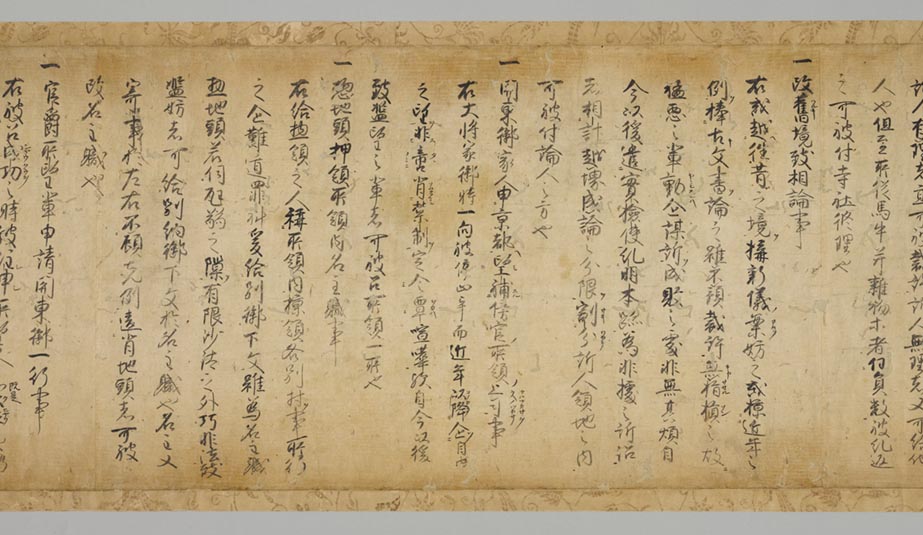 人也但至所従馬牛并雑物木者任員数被糺返
之可被付寺社修理也
一改舊境致相論事
右或越往昔之境搆新儀案妨之或掠近年之
例捧古文書論之雖不預裁許無指損之故
猛悪之輩動企謀訴成敗之處非無其煩自
今以後遣實撿使糺明本跡為非據之訴訟
者相計越境成論之分限割分訴人領地之内
可被付論人之方也
一関東御家人申京都望補傍官所領上司事
右大将家御時一向被停止畢而近年以降企自由
之望非啻背禁制定令覃喧嘩歟自今以後
致濫望之輩者可被召所領一所也
一惣地頭押領所領内名主職事
右給惣領之人稱所領内掠領各別村事所行
之企難遁罪科爰給別御下文雖為名主職
惣地頭若伺尫弱之隙有限沙汰之外巧非法致
濫妨者可給別納御下文於名主職也名主又
寄事於左右不顧先例違背地頭者可被
改名主職也
一官爵所望輩申請関東御一行事
右被召成功之時被注申所望人